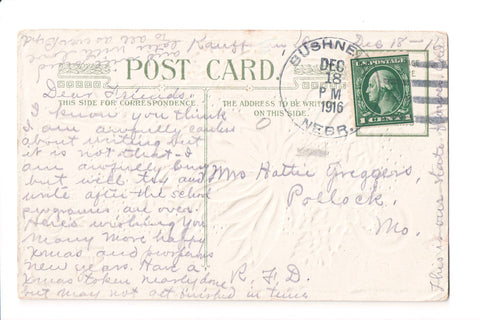 Dec 18 - 16
POST CARD.
THIS SPACE FOR CORRESPONDENCE
THE ADDRESS TO BE WRITTEN
ON THIS SIDE.
BUSHNELL
DEC
18
PM
1916
NEBR.
U.S. POSTAGE
1 CENT 1
Dear Friends.
I know you think
I am awfully careless
about writing but
it is not that - I
am awfully busy
but will try and
write after the school
programs are over.
Here's wishing you
Many More happy
Xmas and
new years. Have a
Xmas token nearly done
but may not get finished in time
Mrs Hattie Greggers,
Pollock.
Mo.
R. F. D.
This is our state